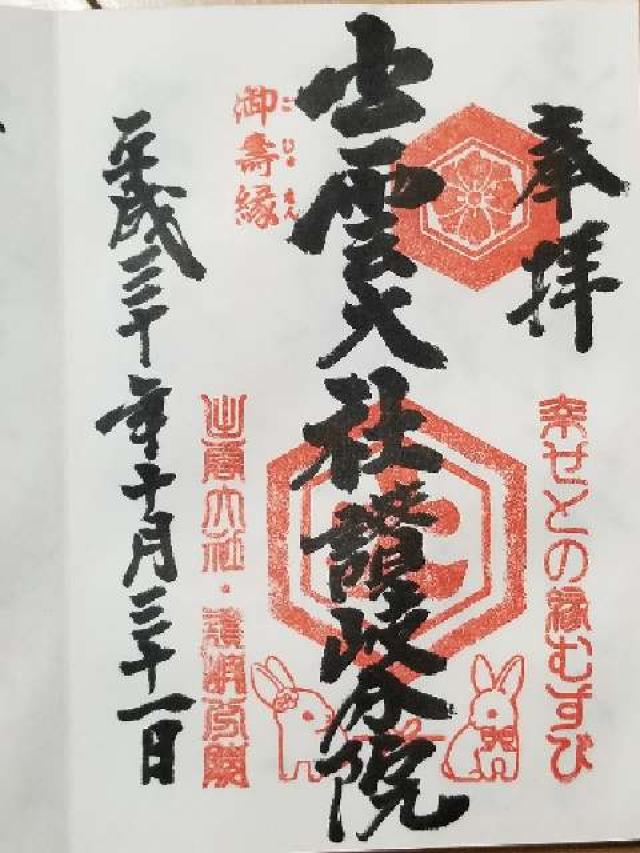 奉拝
幸せとの縁むすび
出雲大社讃岐分院
御壽縁
ごじゅえん
出雲大社・讃岐分院
平成三十年十月三十一日